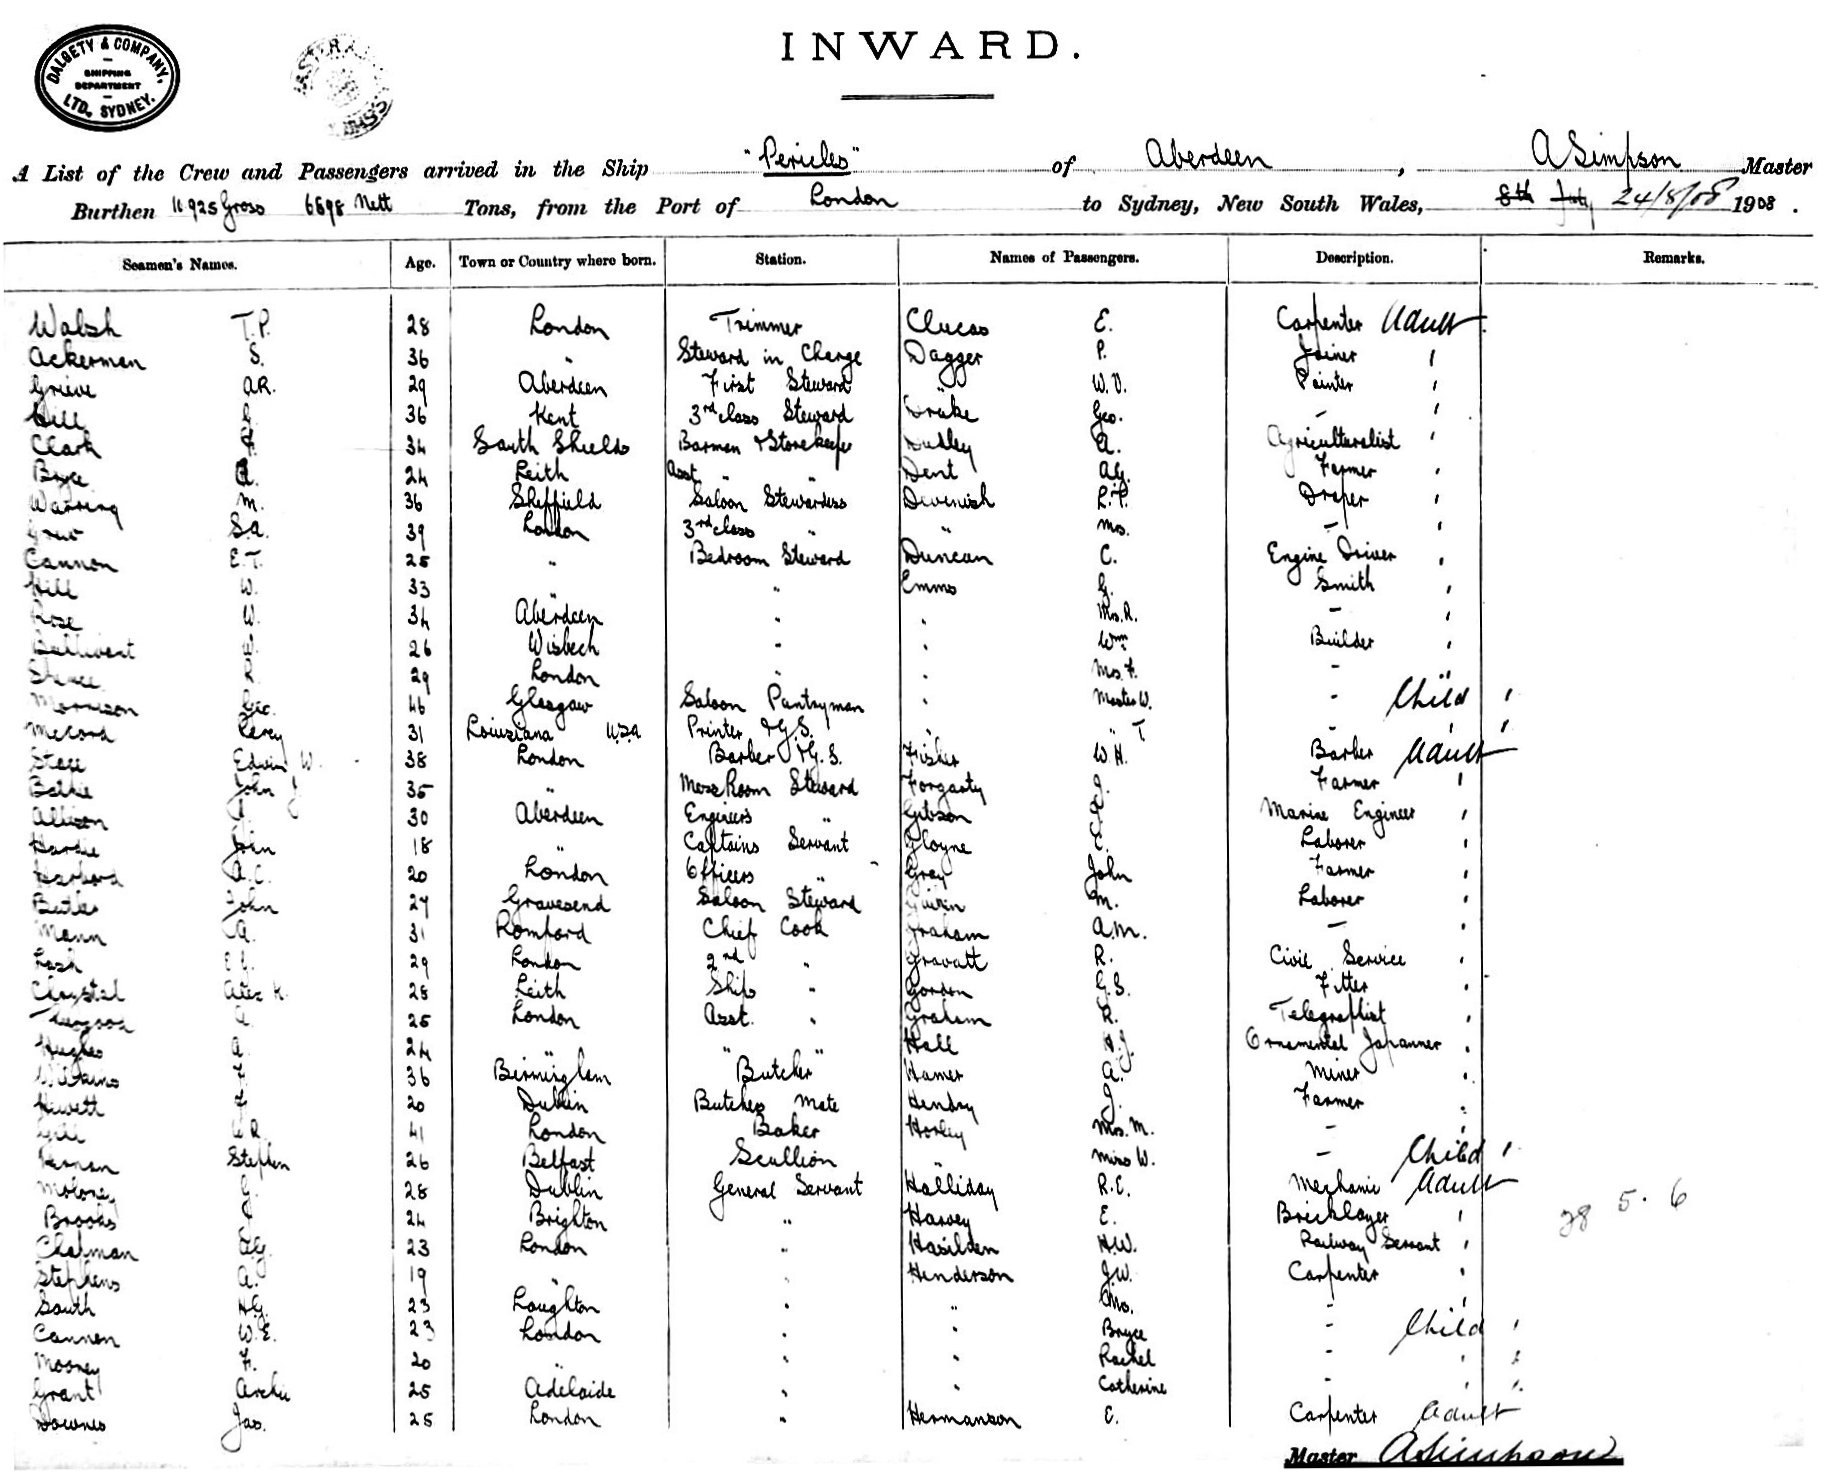 INWARD.
DALGETY & COMPANY,
SHIPPING
DEPARTMENT
LTD, SYDNEY.
A List of the Crew and Passengers arrived in the Ship "Pericles" of Aberdeen, A Simpson Master
Burthen 10925 Gross 6898 Nett Tons, from the Port of London to Sydney, New South Wales, 8th July 24/8/08 1908.
Seamen's Names. Age. Town or Country where born. Station. Names of Passengers. Description. Remarks.
Walsh T.P. 28 London Trimmer Clucas E. Carpenter Adult
Ackerman S. 36 " Steward in Charge Dagger P. Joiner "
Grieve A.R. 29 Aberdeen First Steward " W.V. Painter "
Hill 36 Kent 3rd class Steward Drake Geo. - "
Clark 34 South Shields Barman & Storekeeper Dudley A. Agriculturalist "
Bryce A. 24 Leith Asst. " " Dent A.G. Farmer "
Warring M. 36 Sheffield Saloon Stewardess Devenish R.P. Draper "
S.A. 39 London 3rd class " " Mrs. - "
Cannon E.T. 25 " Bedroom Steward Duncan C. Engine Driver "
Hill W. 33 " " Emms G. Smith "
Rose W. 34 Aberdeen " " Mrs. R. - "
26 Wisbech " " Wm. Builder "
29 London " " Mrs. F. - "
Morrison Geo. 46 Glasgow Saloon Pantryman " Master W. - Child "
McCord Percy 31 Louisiana USA Printer & G.S. " " T - " "
Edwin W. 38 London Barber & G.S. Fisher W.H. Barber Adult
John J 35 " Mess Room Steward Forgarty J. Farmer "
Allison A. 30 Aberdeen Engineers " Gibson A. Marine Engineer "
Hardie John 18 " Captains Servant Gloyne E. Laborer "
Harbord A.C. 20 London Officers " Gray John Farmer "
Butler John 27 Gravesend Saloon Steward M. Laborer "
Mann A. 31 Romford Chief Cook Graham A.M. - "
Lash 29 London 2nd " Gravatt R. Civil Service "
Chrystal Alex K. 28 Leith Ship " Gordon G.S. Fitter "
25 London Asst. " Graham R. Telegraphist "
Hughes A. 24 " " " Hall Ornamental Japanner "
36 Birmingham Butcher Hamer A. Miner "
Hewett 20 Dublin Butchers Mate Hendry J. Farmer "
Gill 41 London Baker Horley Mrs. M. - "
Stephen 26 Belfast Scullion " Miss W. - Child "
Moloney J. 28 Dublin General Servant Halliday R.E. Mechanic Adult
Brooks 24 Brighton " Harvey E. Bricklayer "
Chapman A.G. 23 London " Hasilden H.W. Railway Servant "
Stephens A. 19 " " Henderson J.W. Carpenter "
South H.G. 23 Loughton " " Mrs. - "
Cannon W.E. 23 London " " Bryce - Child "
Mooney F. 20 " " " Rachel - " "
Grant Archie 25 Adelaide " " Catherine - " "
Downes Jas. 25 London " Hermanson E. Carpenter Adult
28 5. 6
Master A Simpson